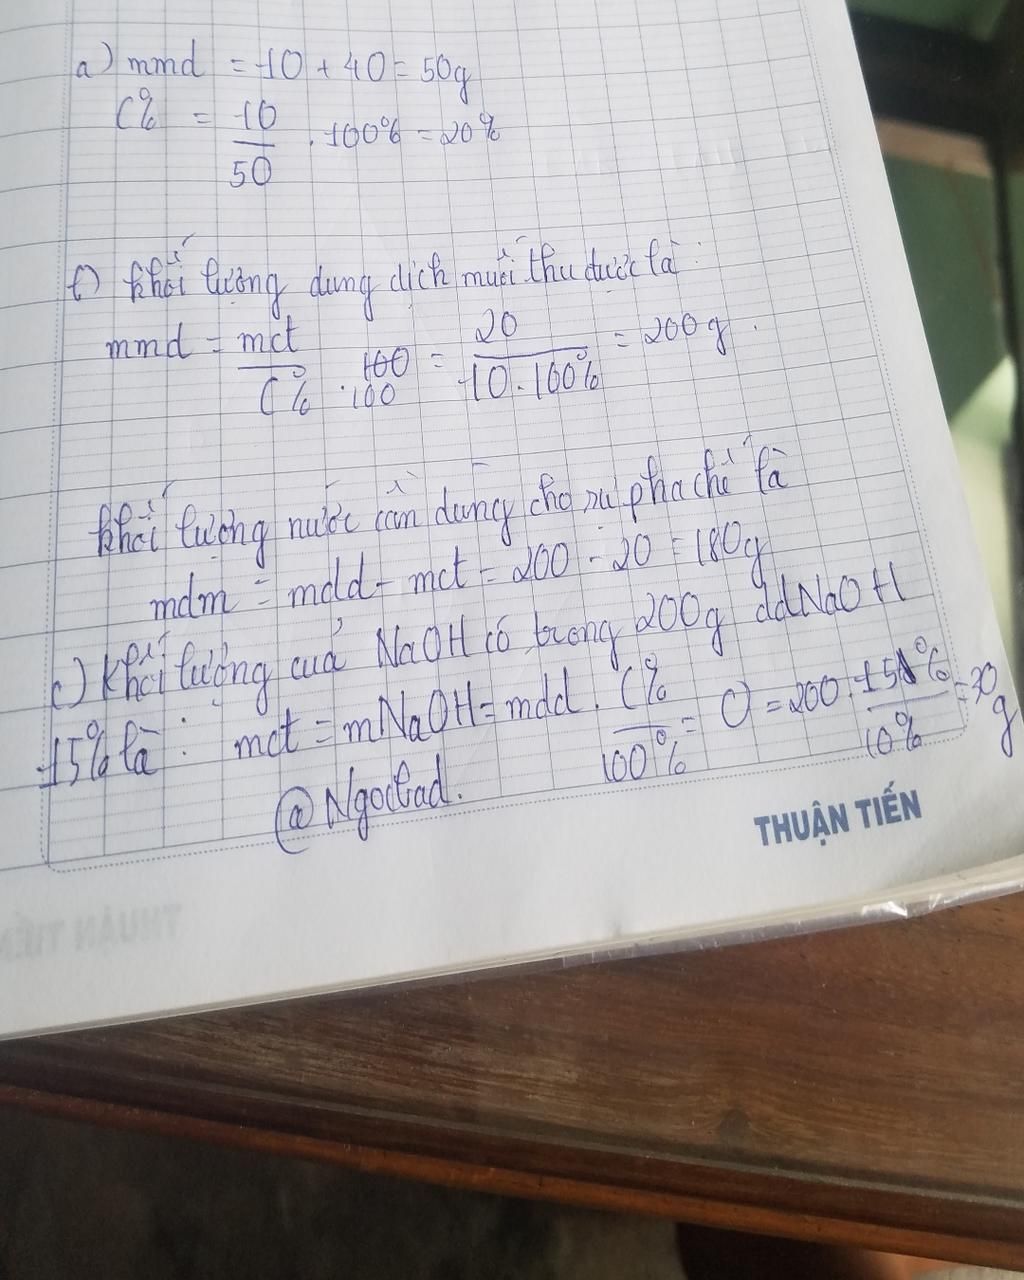 a) mmd = 10 + 40 = 50g
C% = 10/50 . 100% = 20%
b) Khối lượng dung dịch muối thu được là:
mmd = mct/C% . 100 = 20/10.100% = 200g.
Khối lượng nước cần dùng cho sự pha chế là
mdm = mdd - mct = 200 - 20 = 180g
c) Khối lượng cuả NaOH có trong 200g ddNaOH
15% là: mct = mNaOH = mdd . C%/100% = 0 = 200 . 15%/10% = 30g
@Ngoclad.
THUẬN TIẾN